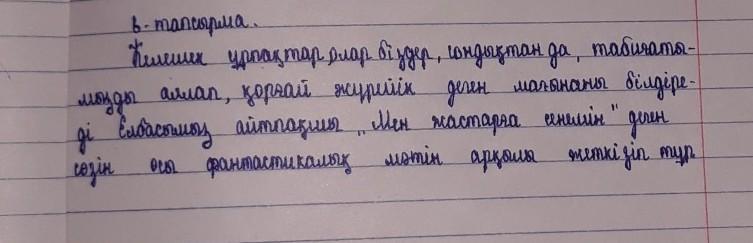 6-тапсырма.
Келешек ұрпақтар олар біздер, сондықтан да, табиғаты-
мызды аялап, қорғай жүрийік деген мағынаны білдіре-
ді Елбасымыз айтпақшы „Мен жастарға сенемін" деген
сөзін осы фантастикалық мәтін арқылы жеткізіп тұр